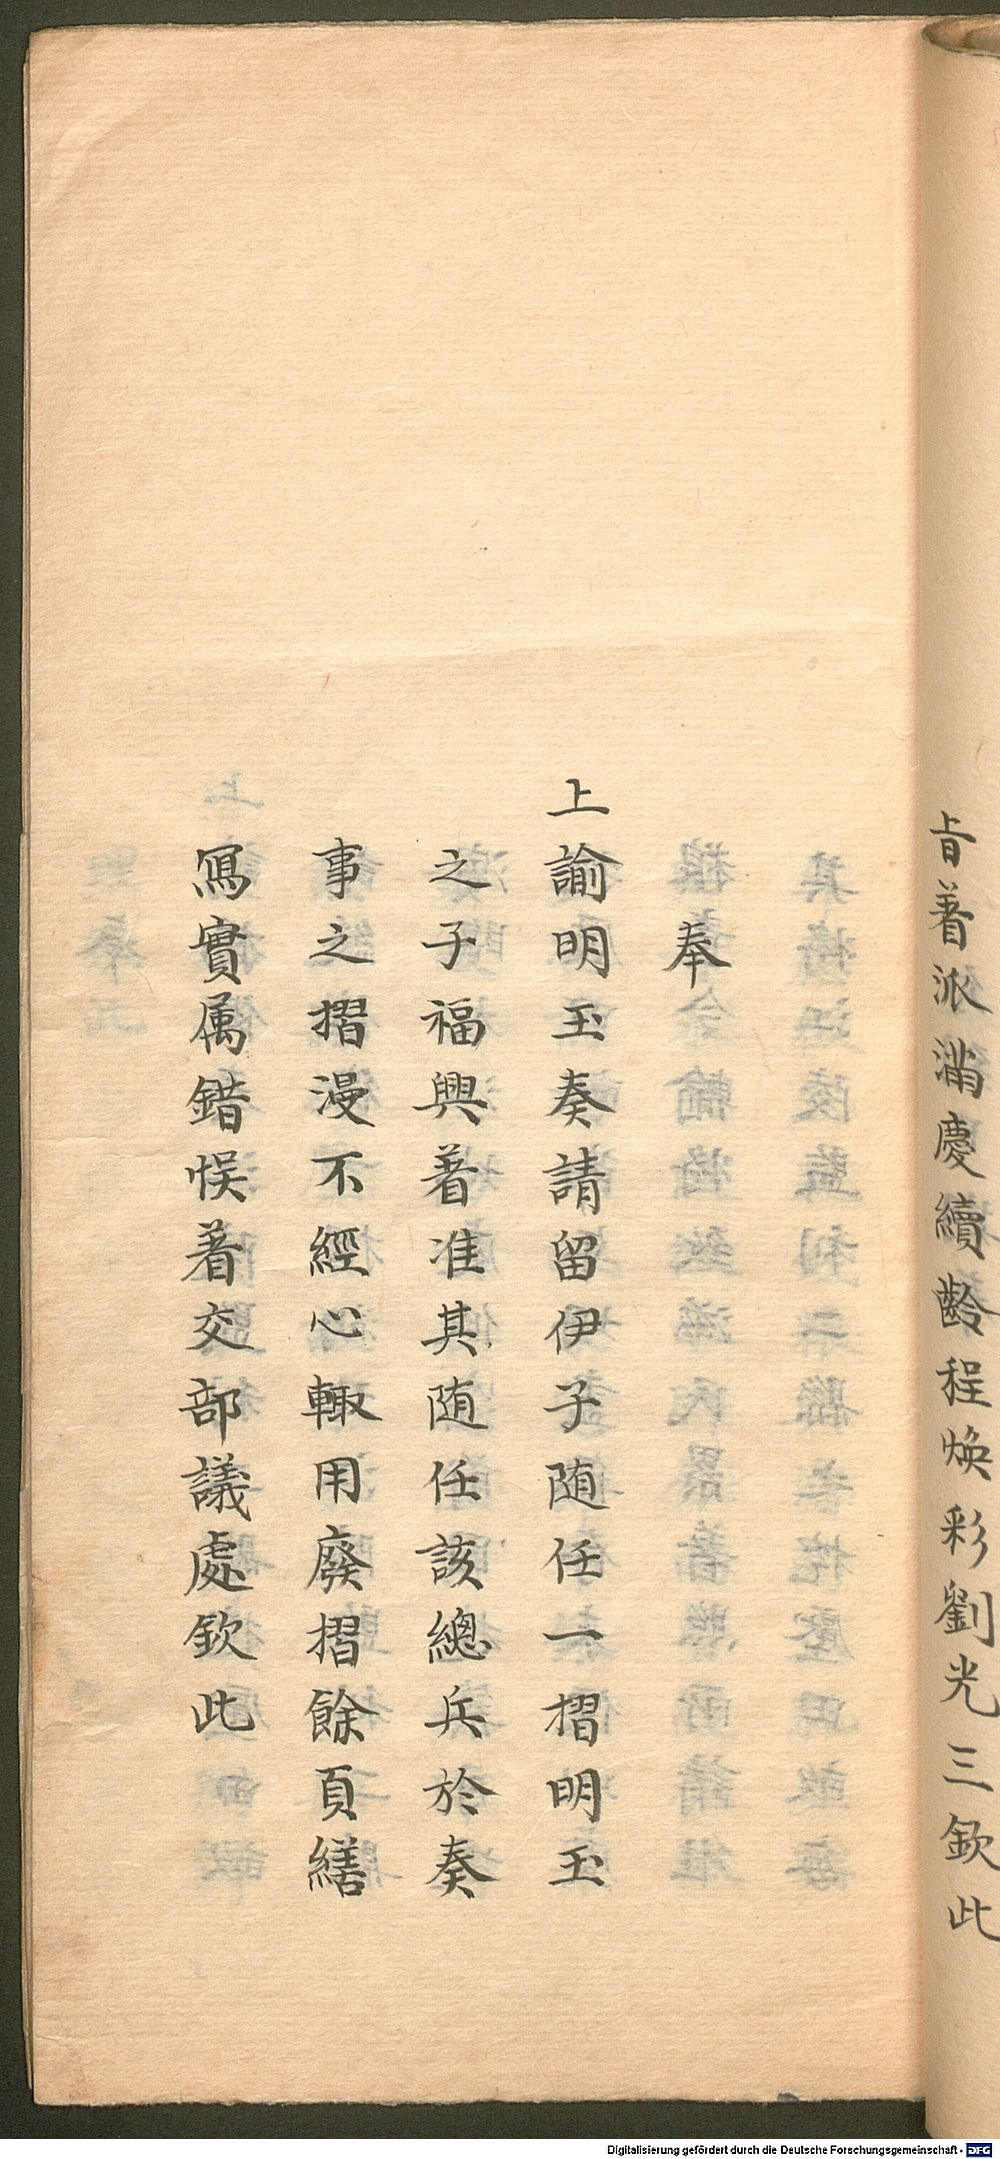 旨着派滿慶續齡程煥彩劉光三欽此
奉
上諭明玉奏請留伊子随任一摺明玉
之子福興著准其随任該總兵於奏
事之摺漫不經心輙用廢摺餘頁繕
寫實属錯悮着交部議處欽此
Digitalisierung gefördert durch die Deutsche Forschungsgemeinschaft - DFG